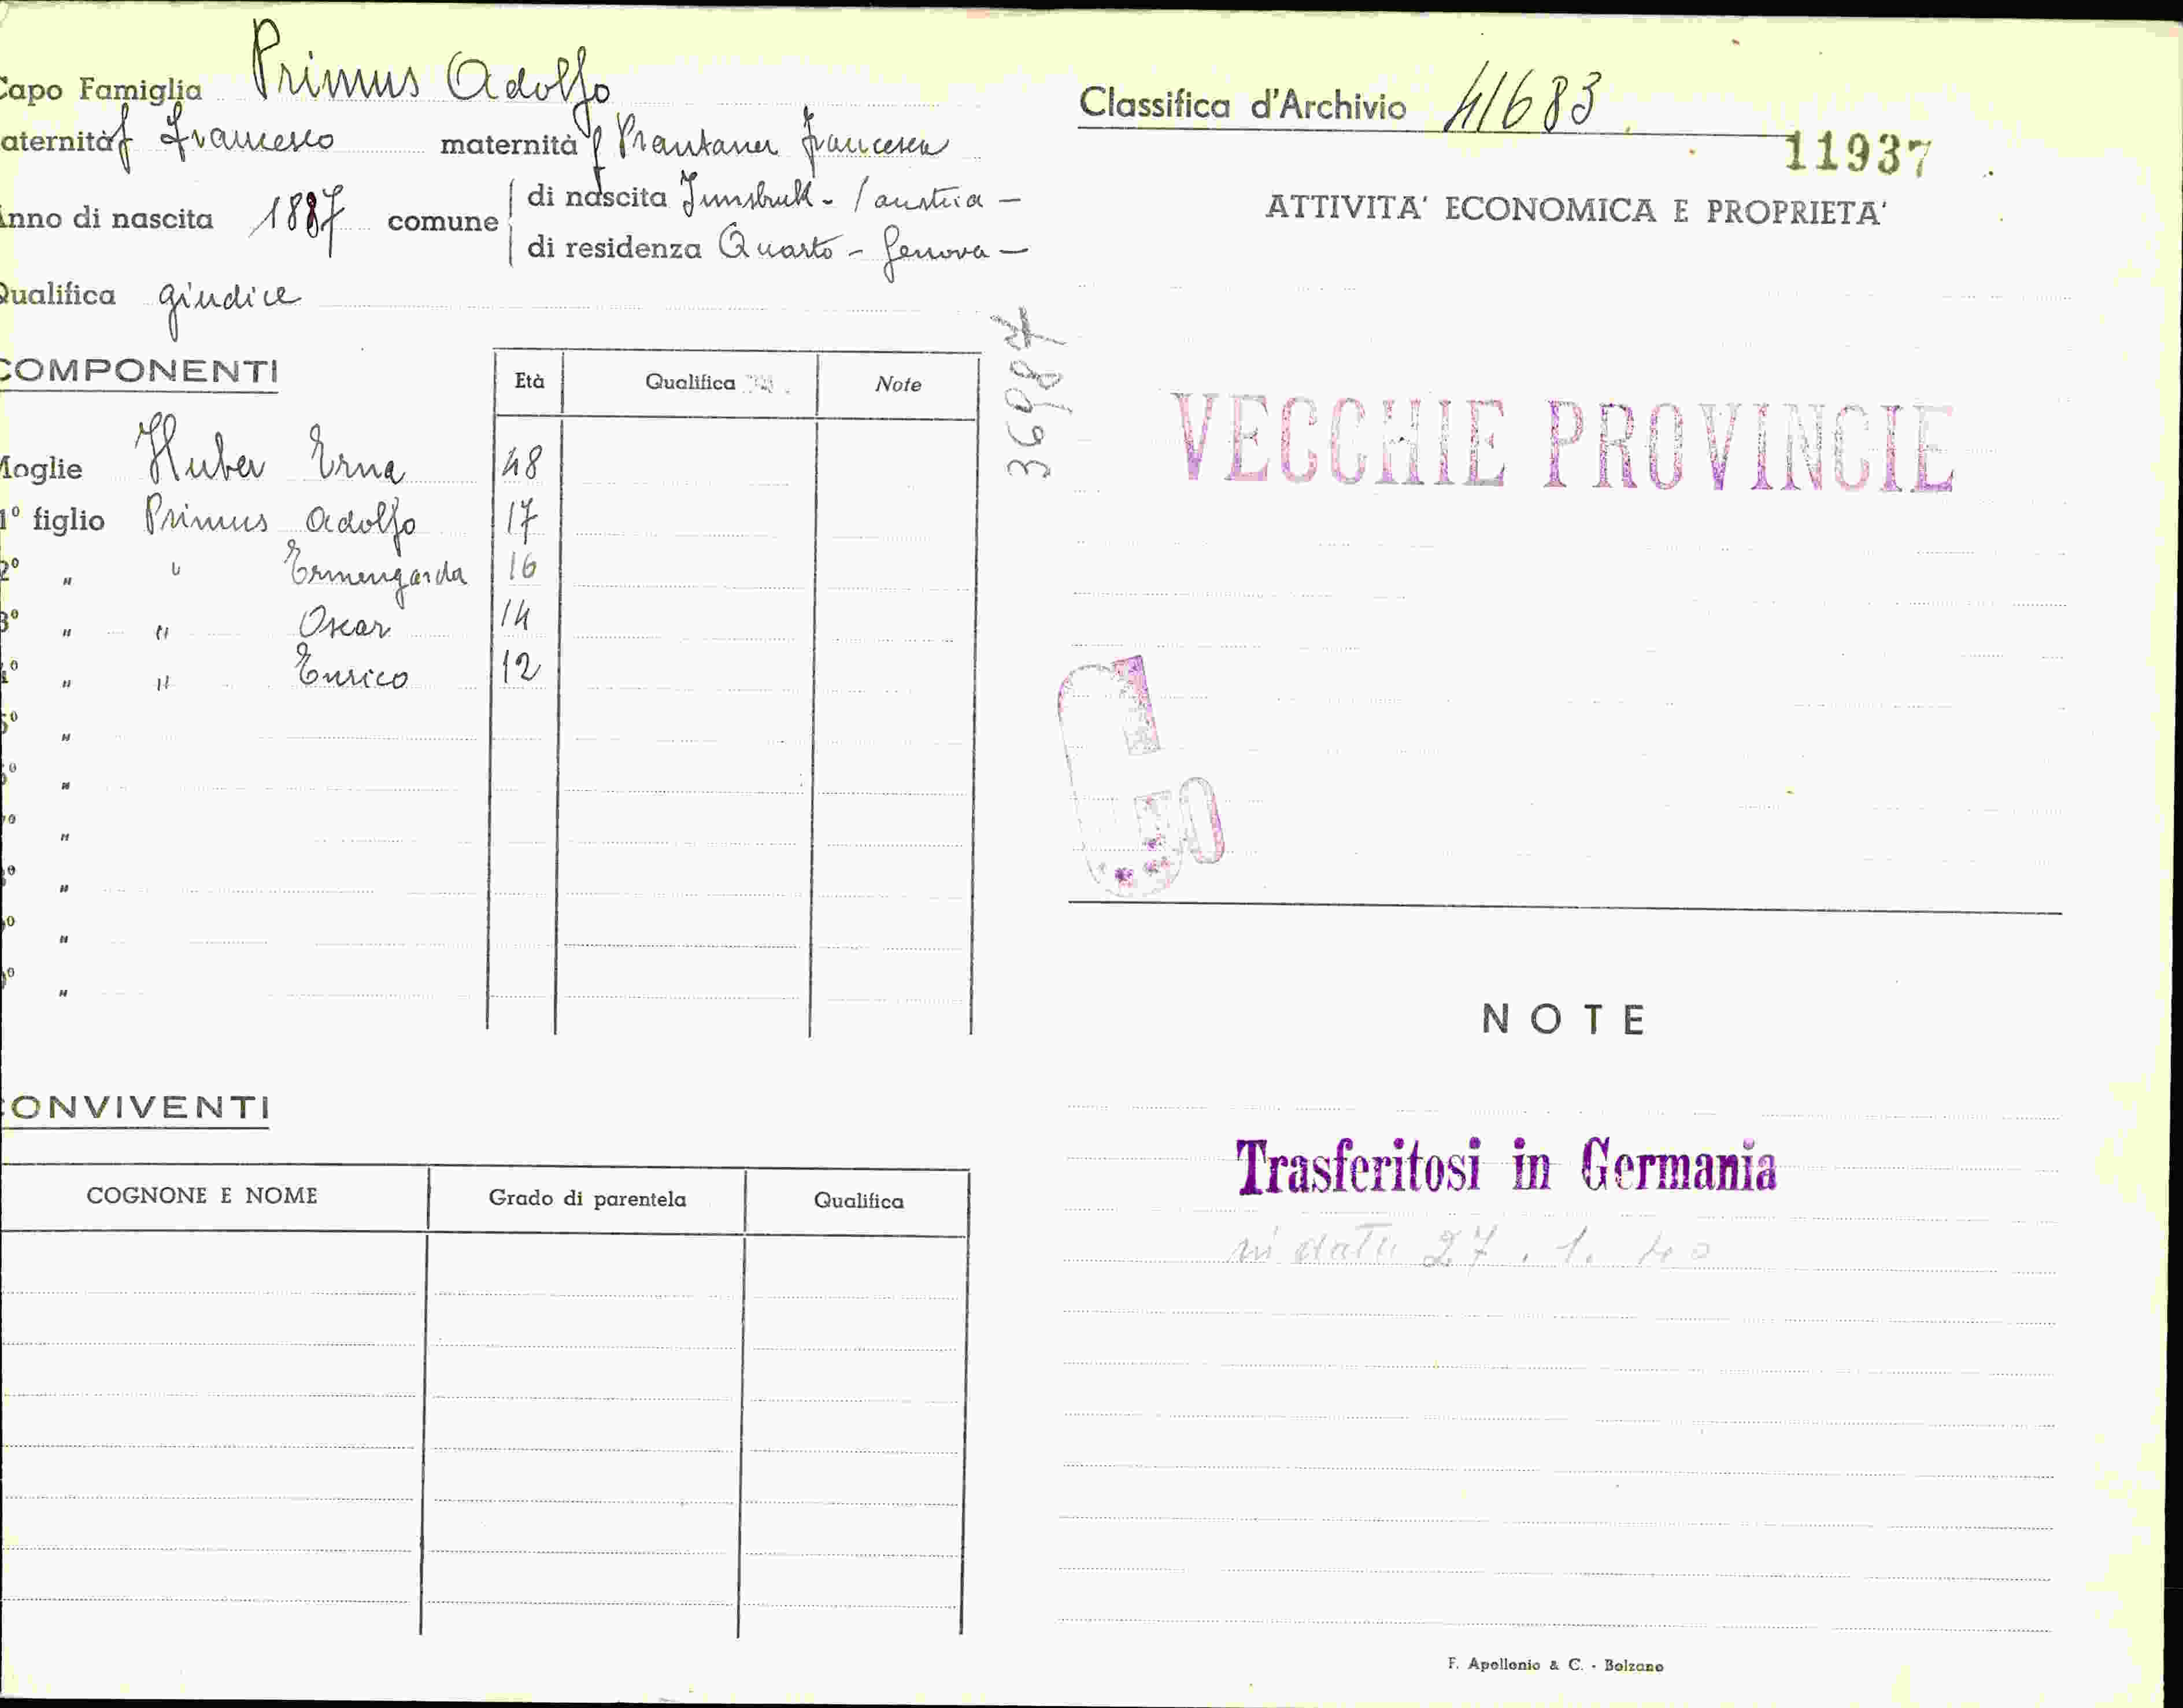 Capo Famiglia Primus Adolfo
aternità f Francesco maternità f Prantaner Francesca
Anno di nascita 1887 comune di nascita Innsbruk - / austria -
di residenza Quarto - Genova -
Qualifica giudice
COMPONENTI
Età Qualifica Note
Moglie Huber Erna 48
1° figlio Primus Adolfo 17
2° " " Ermengarda 16
3° " " Oscar 14
4° " " Enrico 12
5° "
6° "
7° "
8° "
9° "
10° "
CONVIVENTI
COGNONE E NOME Grado di parentela Qualifica
36987
Classifica d'Archivio 41683
11937
ATTIVITA' ECONOMICA E PROPRIETA'
VECCHIE PROVINCIE
NOTE
Trasferitosi in Germania
in data 27.1.40
F. Apollonio & C. - Bolzano